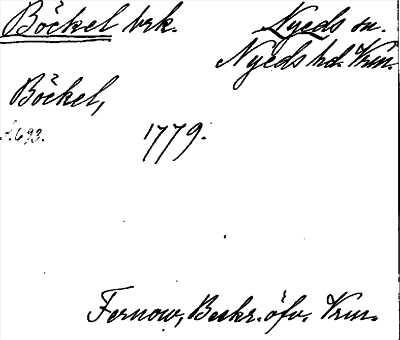 Böckel brk. Nyeds sn.
Nyeds hd. Vrm.
Böckel,
s. 693. 1779.
Fernow, Beskr. öfv. Vrm.